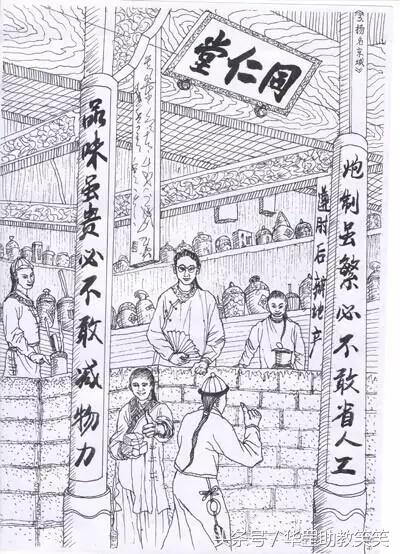 《扬名京城》
同仁堂
炮制虽繁必不敢省人工
遵肘后辨地产
品味虽贵必不敢减物力
头条号 / 助教笑笑